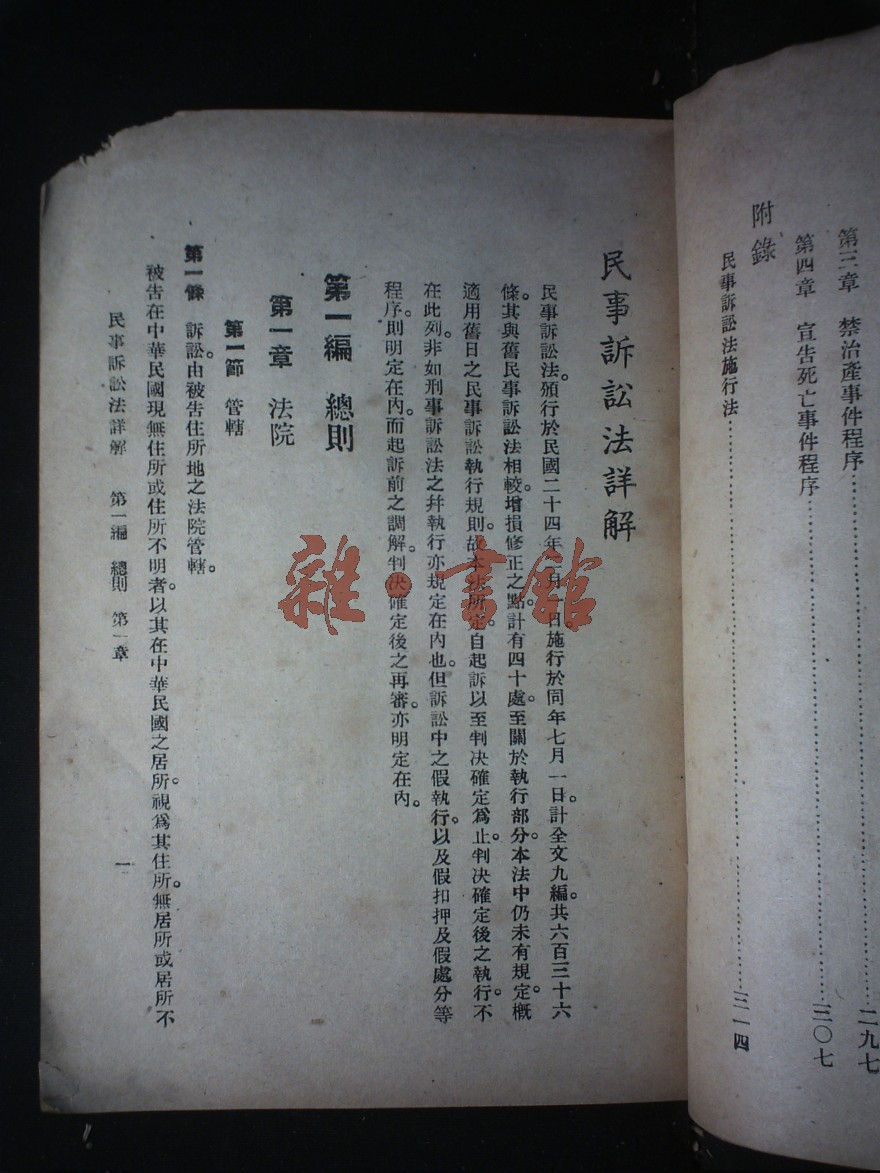 第三章　禁治產事件程序……二九七
第四章　宣告死亡事件程序……三〇七
附錄
民事訴訟法施行法……三一四
民事訴訟法詳解
民事訴訟法。頒行於民國二十四年二月一日。施行於同年七月一日。計全文九編。共六百三十六
條。其與舊民事訴訟法相較。增損修正之點。計有四十處。至關於執行部分。本法中仍未有規定。概
適用舊日之民事訴訟執行規則。故本法所定。自起訴以至判決確定爲止。判決確定後之執行。不
在此列。非如刑事訴訟法之幷執行亦規定在內也。但訴訟中之假執行。以及假扣押及假處分等
程序。則明定在內。而起訴前之調解。判決確定後之再審。亦明定在內。
第一編　總則
第一章　法院
第一節　管轄
第一條　訴訟。由被告住所地之法院管轄。
被告在中華民國現無住所或住所不明者。以其在中華民國之居所。視爲其住所。無居所或居所不
民事訴訟法詳解　第一編　總則　第一章　一
雜·書館